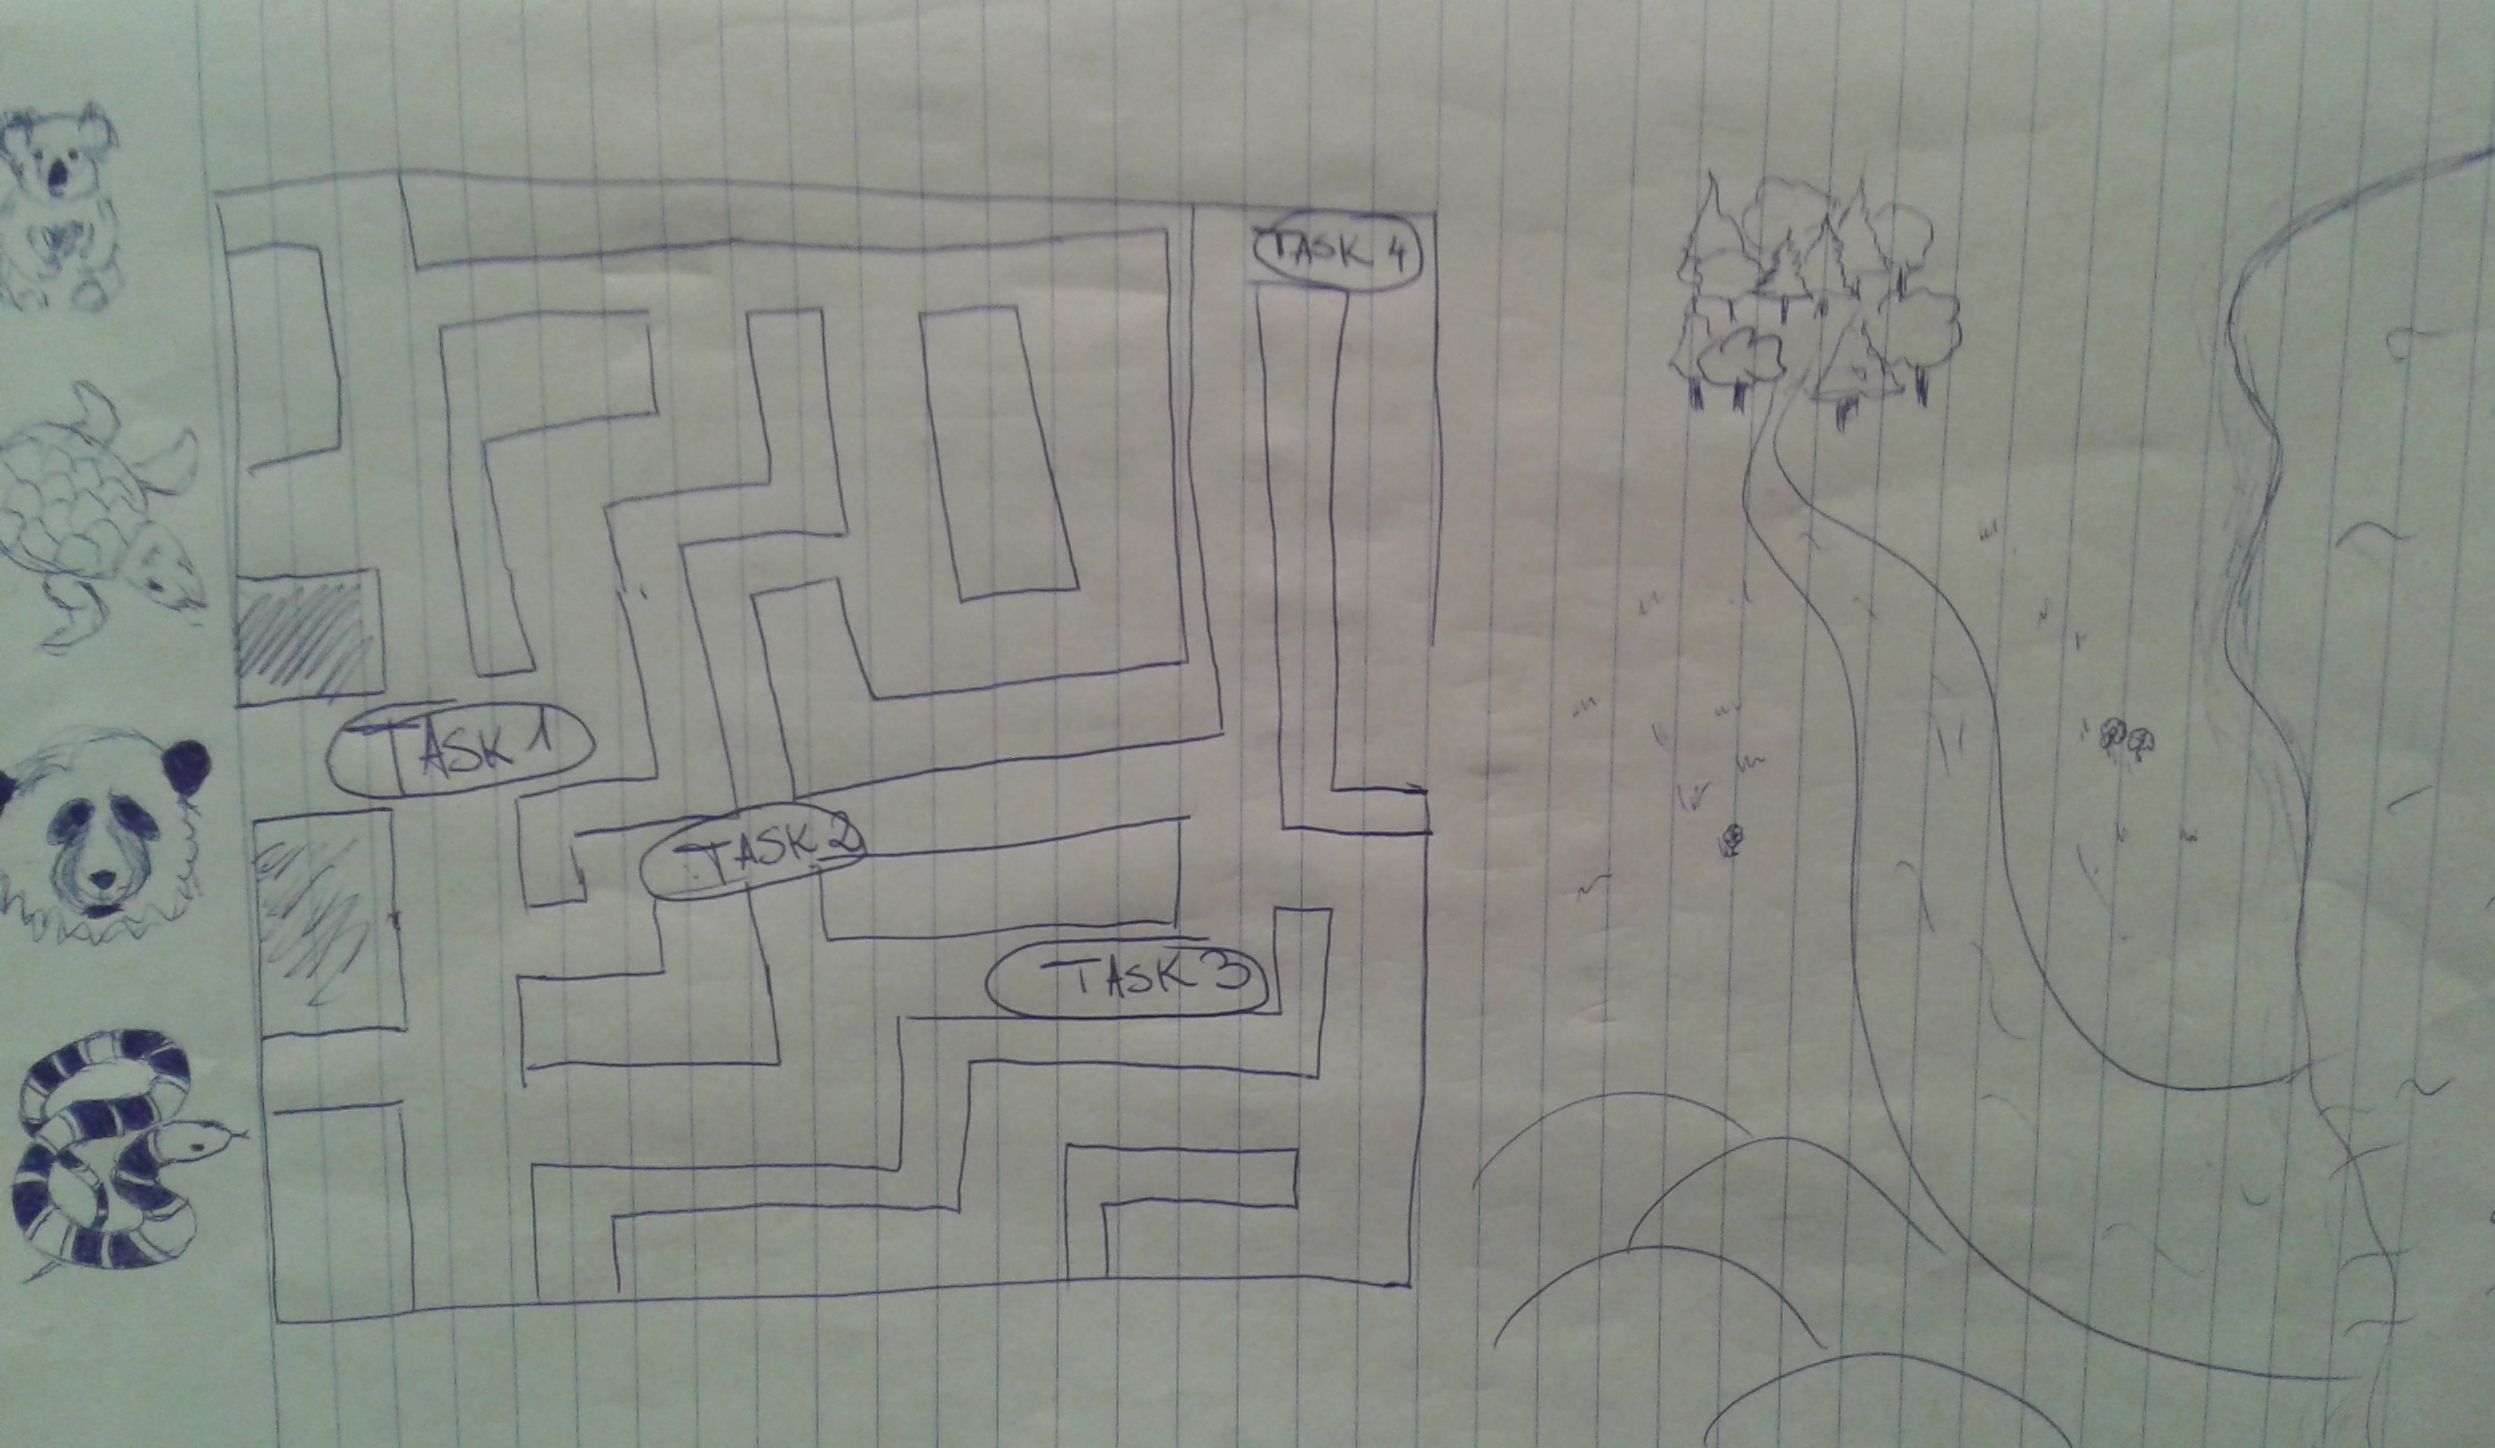 TASK 4
TASK 1
TASK 2
TASK 3